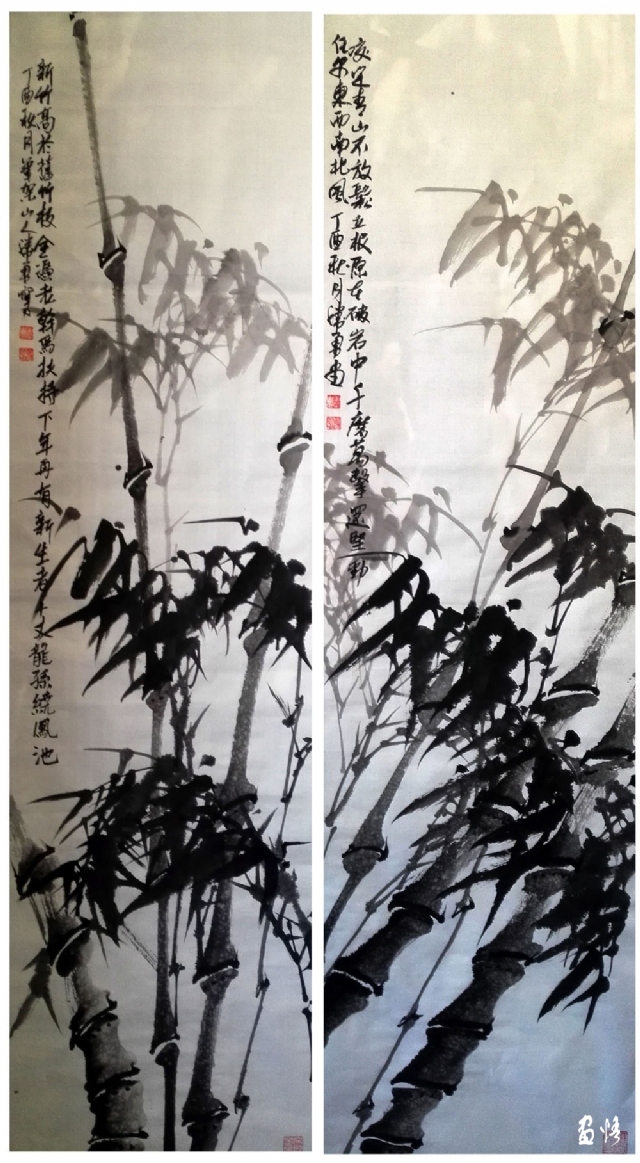 新竹高於舊竹枝全憑老幹為扶持下年再有新生者十丈龍孫繞鳳池
丁酉秋月筆架山人
咬定青山不放鬆立根原在破岩中千磨萬擊還堅勁
任尔東西南北風丁酉秋月